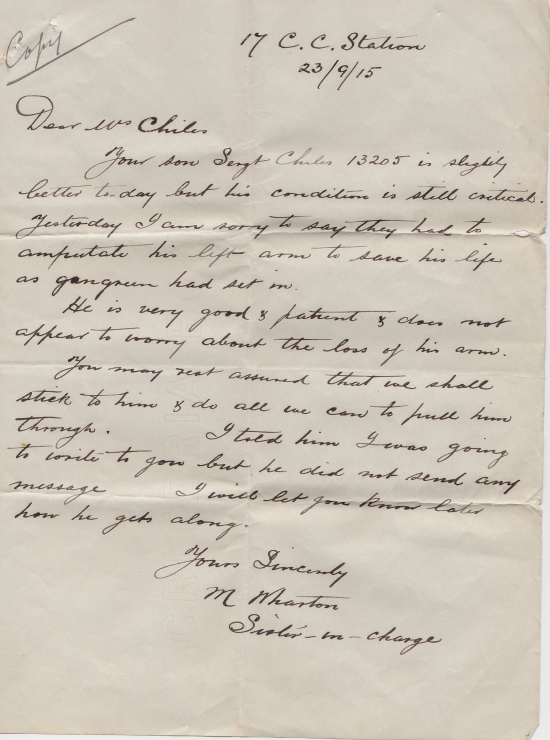 Copy
17 C. C. Station
23/9/15
Dear Mrs Chiles
Your son Sergt Chiles 13205 is slightly
better to-day but his condition is still critical.
Yesterday I am sorry to say they had to
amputate his left arm to save his life
as gangreen had set in.
He is very good & patient & does not
appear to worry about the loss of his arm.
You may rest assured that we shall
stick to him & do all we can to pull him
through. I told him I was going
to write to you but he did not send any
message I will let you know later
how he gets along.
Yours Sincerely
M Wharton
Sister-in-charge